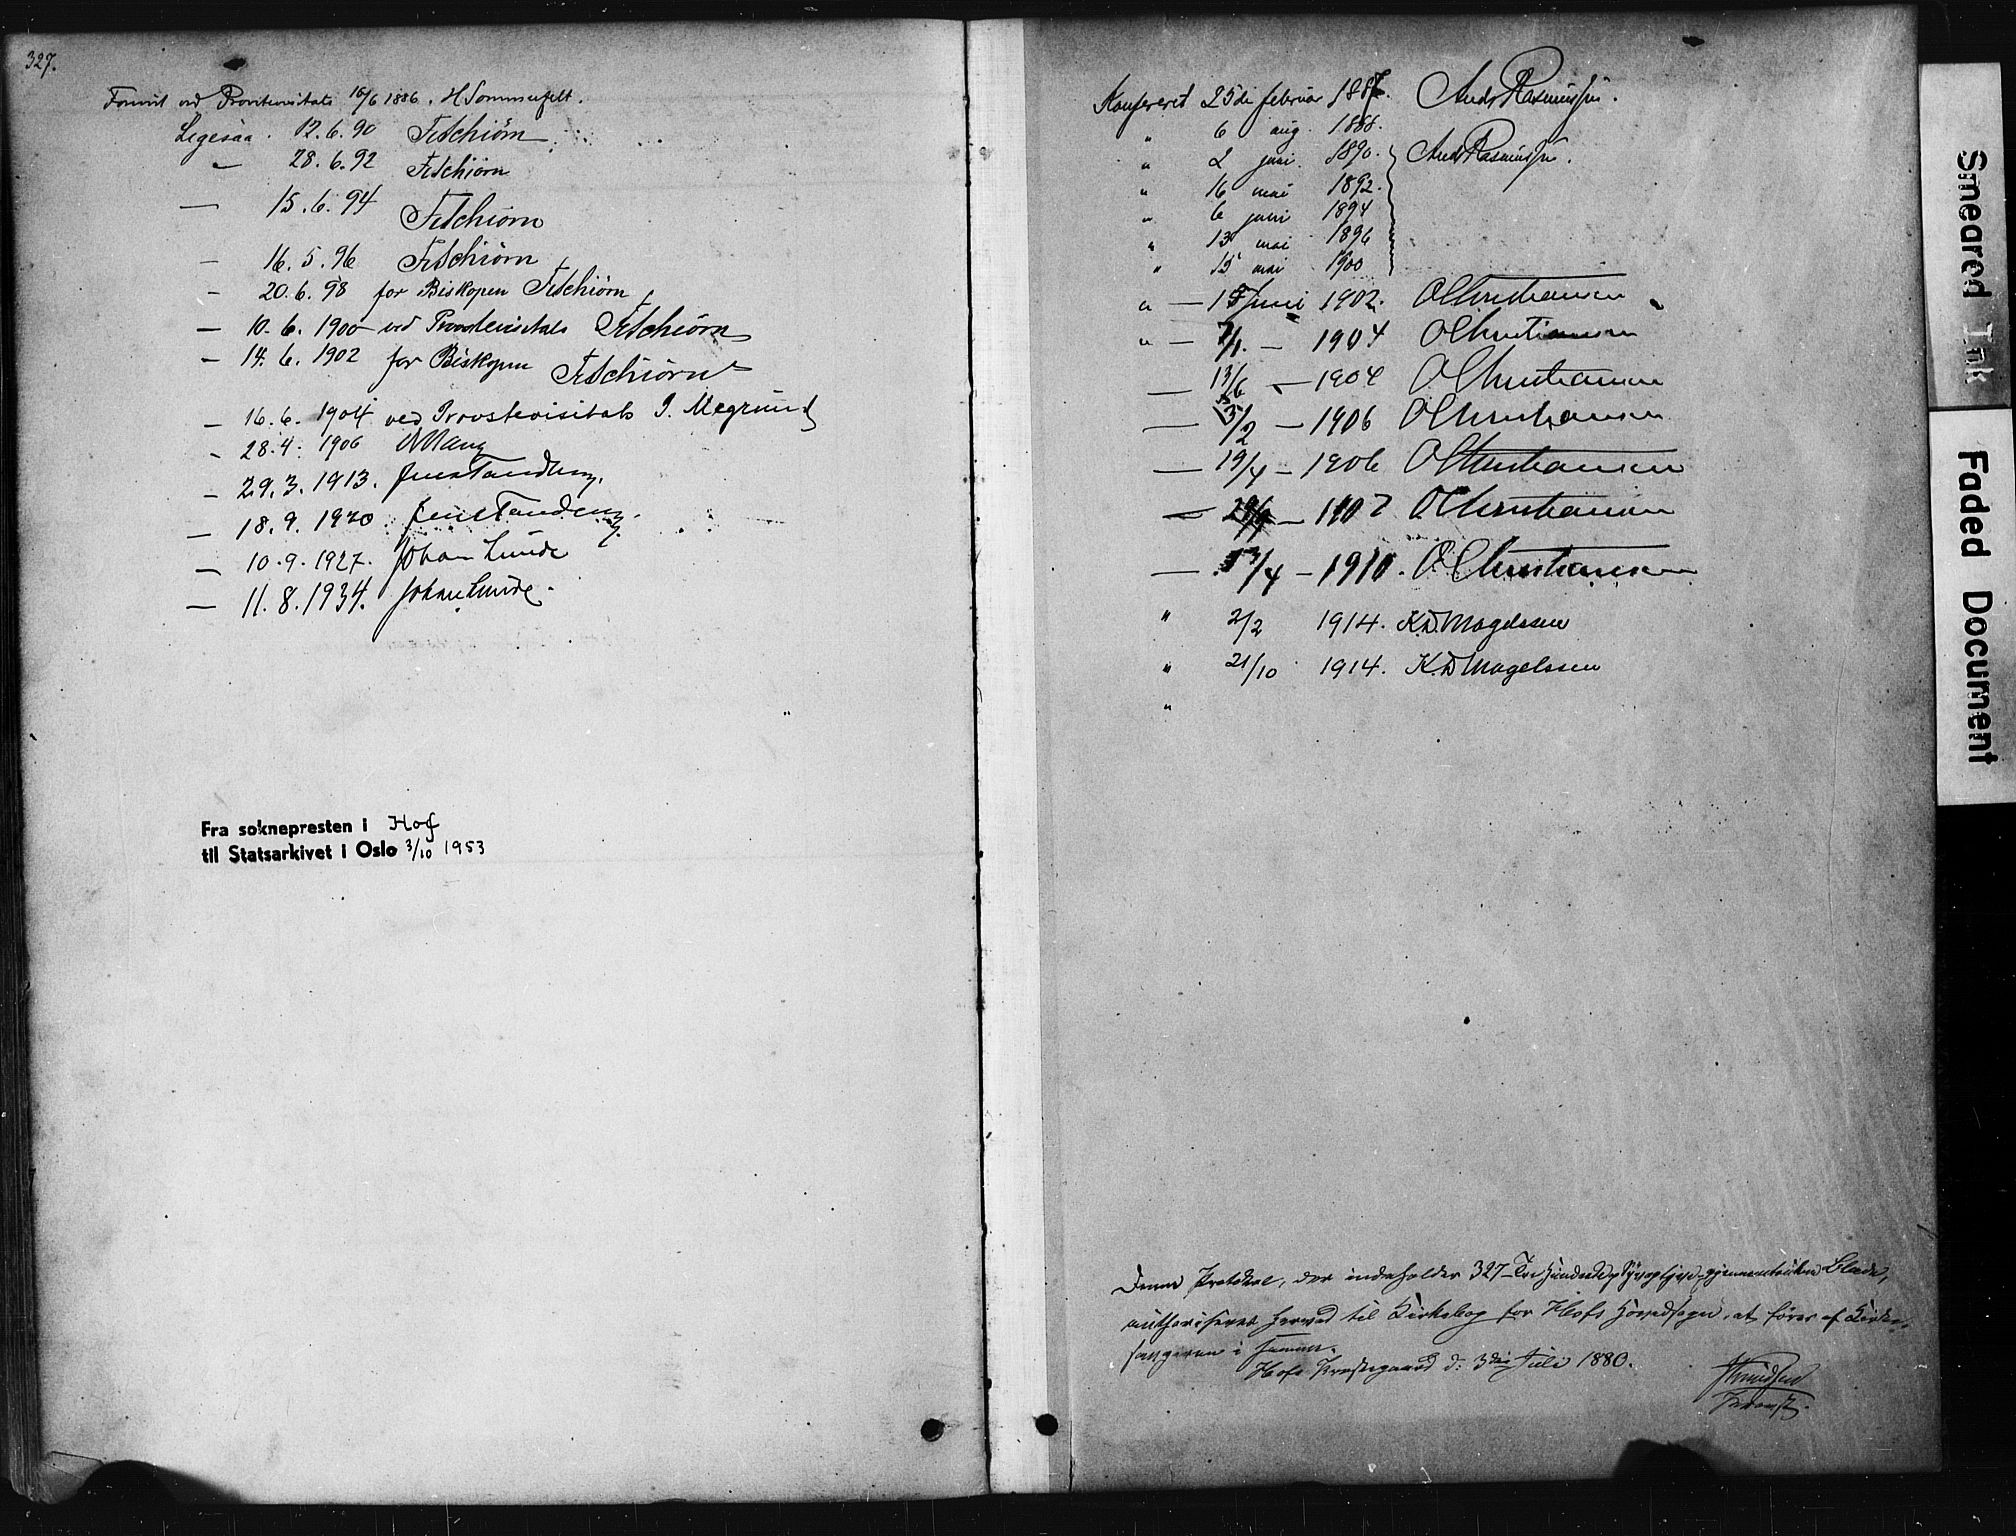 327.
Forevist ved Provstevisitats 16/6 1886. H Sommerfelt.
Ligesaa. 12.6.90 FTschiörn
" 28.6.92 FTschiörn
— 15.6.94 FTschiörn
— 16.5.96 FTschiörn
— 20.6.98 for Biskopen FTschiörn
— 10.6.1900 ved Provstevisitats FTschiörn
— 14.6.1902 for Biskopen FTschiörn
— 16.6.1904 ved Provstevisitats J. Megrund
— 28.4.1906
— 29.3.1913. Jens Tandberg.
— 18.9.1920. Jens Tandberg.
— 10.9.1927. Johan Lunde
— 11.8.1934. Johan Lunde.
Fra soknepresten i Hof
til Statsarkivet i Oslo 3/10 1953
Konfereret 25de februar 1887. Andr Rasmussen.
" 6 aug. 1888.
" 2 juni 1890. Andr Rasmussen.
" 16 mai 1892.
" 6 juni 1894
" 13 mai 1896
" 15 mai 1900
" — 15 Juni 1902. O Christiansen
" — 7/1. — 1904 O Christiansen
— 13/6 — 1904 O Christiansen
— 5/2 — 1906 O Christiansen
— 19/4 — 1906 O Christiansen
— — 1907 O Christiansen
— 13/4 — 1910. O. Christiansen
" 2/2 1914. K.D. Magelssen
" 21/10 1914. K.D Magelssen
"
Denne Protokol, der indeholder 327 – Tre Hundrede og Syv og tyve – gjennemtrukne Blade,
authoriseres herved til Kirkebog for Hofs Hovedsogn, at føres af Kirke-
sangeren i samme.
Hofs Præstegaard d: 3die Juli 1880.
Knudsen
Provst.
Smeared Ink
Faded Document